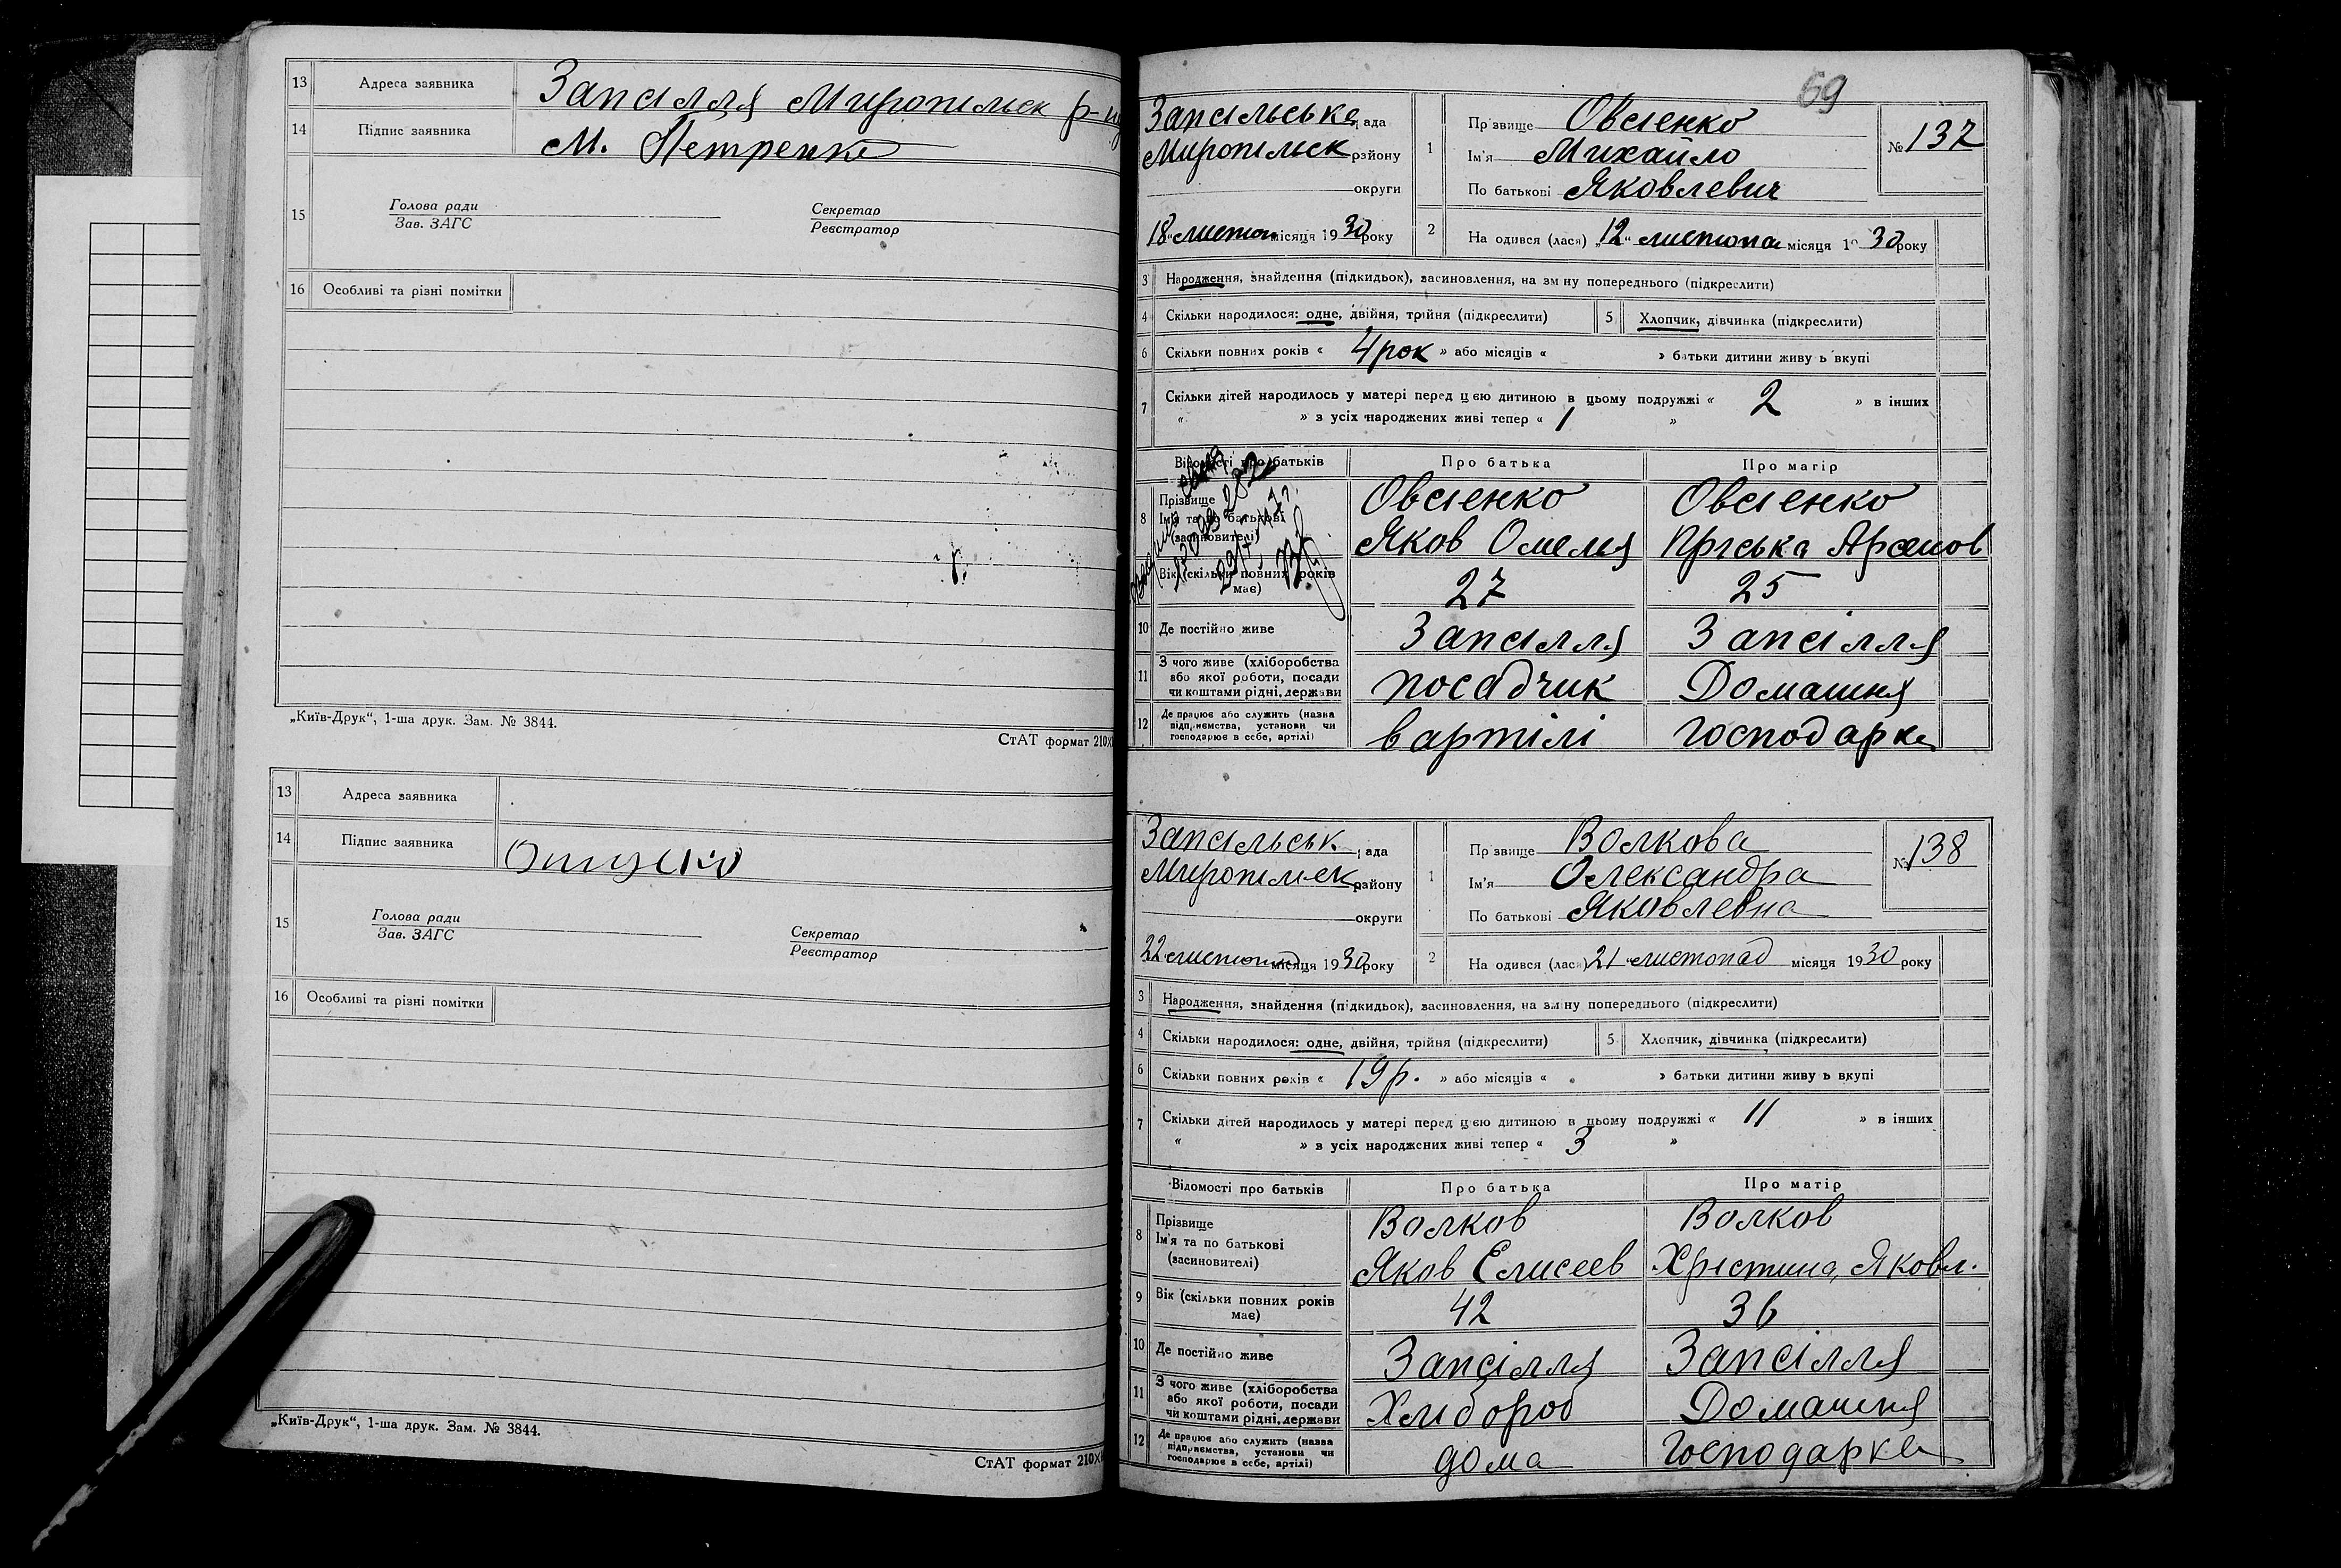 13 Адреса заявника Запсілля Миропільск р-ну
14 Підпис заявника М. Петренко
15 Голова ради Секретар
Зав. ЗАГС Реєстратор
16 Особливі та різні помітки
„Київ-Друк“, 1-ша друк. Зам. № 3844.
СтАТ формат 210х
13 Адреса заявника
14 Підпис заявника
15 Голова ради Секретар
Зав. ЗАГС Реєстратор
16 Особливі та різні помітки
„Київ-Друк“, 1-ша друк. Зам. № 3844.
СтАТ формат 210х
69
Запсільська рада
Миропільск району
округи
18 листоп місяця 1930 року
1 Прізвище Овсієнко
Ім'я Михайло
По батькові Яковлевич
№ 137
2 На одився (лася) „12“ листопа місяця 1930 року
3 Народження, знайдення (підкидьок), засиновлення, на зміну попереднього (підкреслити)
4 Скільки народилося: одне, двійня, трійня (підкреслити) 5 Хлопчик, дівчинка (підкреслити)
6 Скільки повних років « 4 рок » або місяців « » батьки дитини живу ь вкупі
7 Скільки дітей народилось у матері перед цією дитиною в цьому подружжі « 2 » в інших
« » з усіх народжених живі тепер « 1 »
Відомості про батьків Про батька Про матір
8 Прізвище Овсієнко Овсієнко
Ім'я та по батькові Яков Омеля Пріська Арсенов
(засиновителі)
Вік (скільки повних років має) 27 25
10 Де постійно живе Запсілля Запсілля
11 З чого живе (хліборобства або якої роботи, посади чи коштами рідні, держави посадчик Домашня
12 Де працює або служить (назва підприємства, установи чи господарює в себе, артілі) вартілі господарка
Запсільськ. рада
Миропільск району
округи
22 листопад місяця 1930 року
1 Прізвище Волкова
Ім'я Олександра
По батькові Яковлевна
№ 138
2 На одився (лася) 21 „листопад місяця 1930 року
3 Народження, знайдення (підкидьок), засиновлення, на зміну попереднього (підкреслити)
4 Скільки народилося: одне, двійня, трійня (підкреслити) 5 Хлопчик, дівчинка (підкреслити)
6 Скільки повних років « 19 р. » або місяців « » батьки дитини живу ь вкупі
7 Скільки дітей народилось у матері перед цією дитиною в цьому подружжі « 11 » в інших
« » з усіх народжених живі тепер « 3 »
Відомості про батьків Про батька Про матір
8 Прізвище Волков Волков
Ім'я та по батькові Яков Елисеев Христина Яковл.
(засиновителі)
9 Вік (скільки повних років має) 42 36
10 Де постійно живе Запсілля Запсілля
11 З чого живе (хліборобства або якої роботи, посади чи коштами рідні, держави Хлібороб Домашня
12 Де працює або служить (назва підприємства, установи чи господарює в себе, артілі) дома господарка